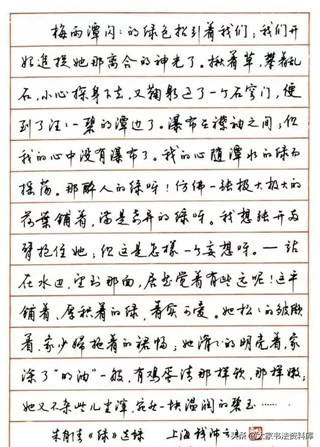 梅雨潭闪闪的绿色招引着我们；我们开
始追捉她那离合的神光了。揪着草，攀着乱
石，小心探身下去，又鞠躬过了一个石穹门，便
到了汪汪一碧的潭边了。瀑布在襟袖之间；但
我的心中没有瀑布了。我的心随潭水的绿而
摇荡。那醉人的绿呀！仿佛一张极大极大的
荷叶铺着，满是奇异的绿呀。我想张开两
臂抱住她；但这是怎样一个妄想呀。——站
在水边，望到那面，居然觉着有些远呢！这平
铺着、厚积着的绿，着实可爱。她松松的皱缬
着，象少妇拖着的裙幅；她滑滑的明亮着，象
涂了“明油”一般，有鸡蛋清那样软，那样嫩；
她又不杂些儿尘滓，宛然一块温润的碧玉……
朱自清《绿》选抄 上海 钱沛云